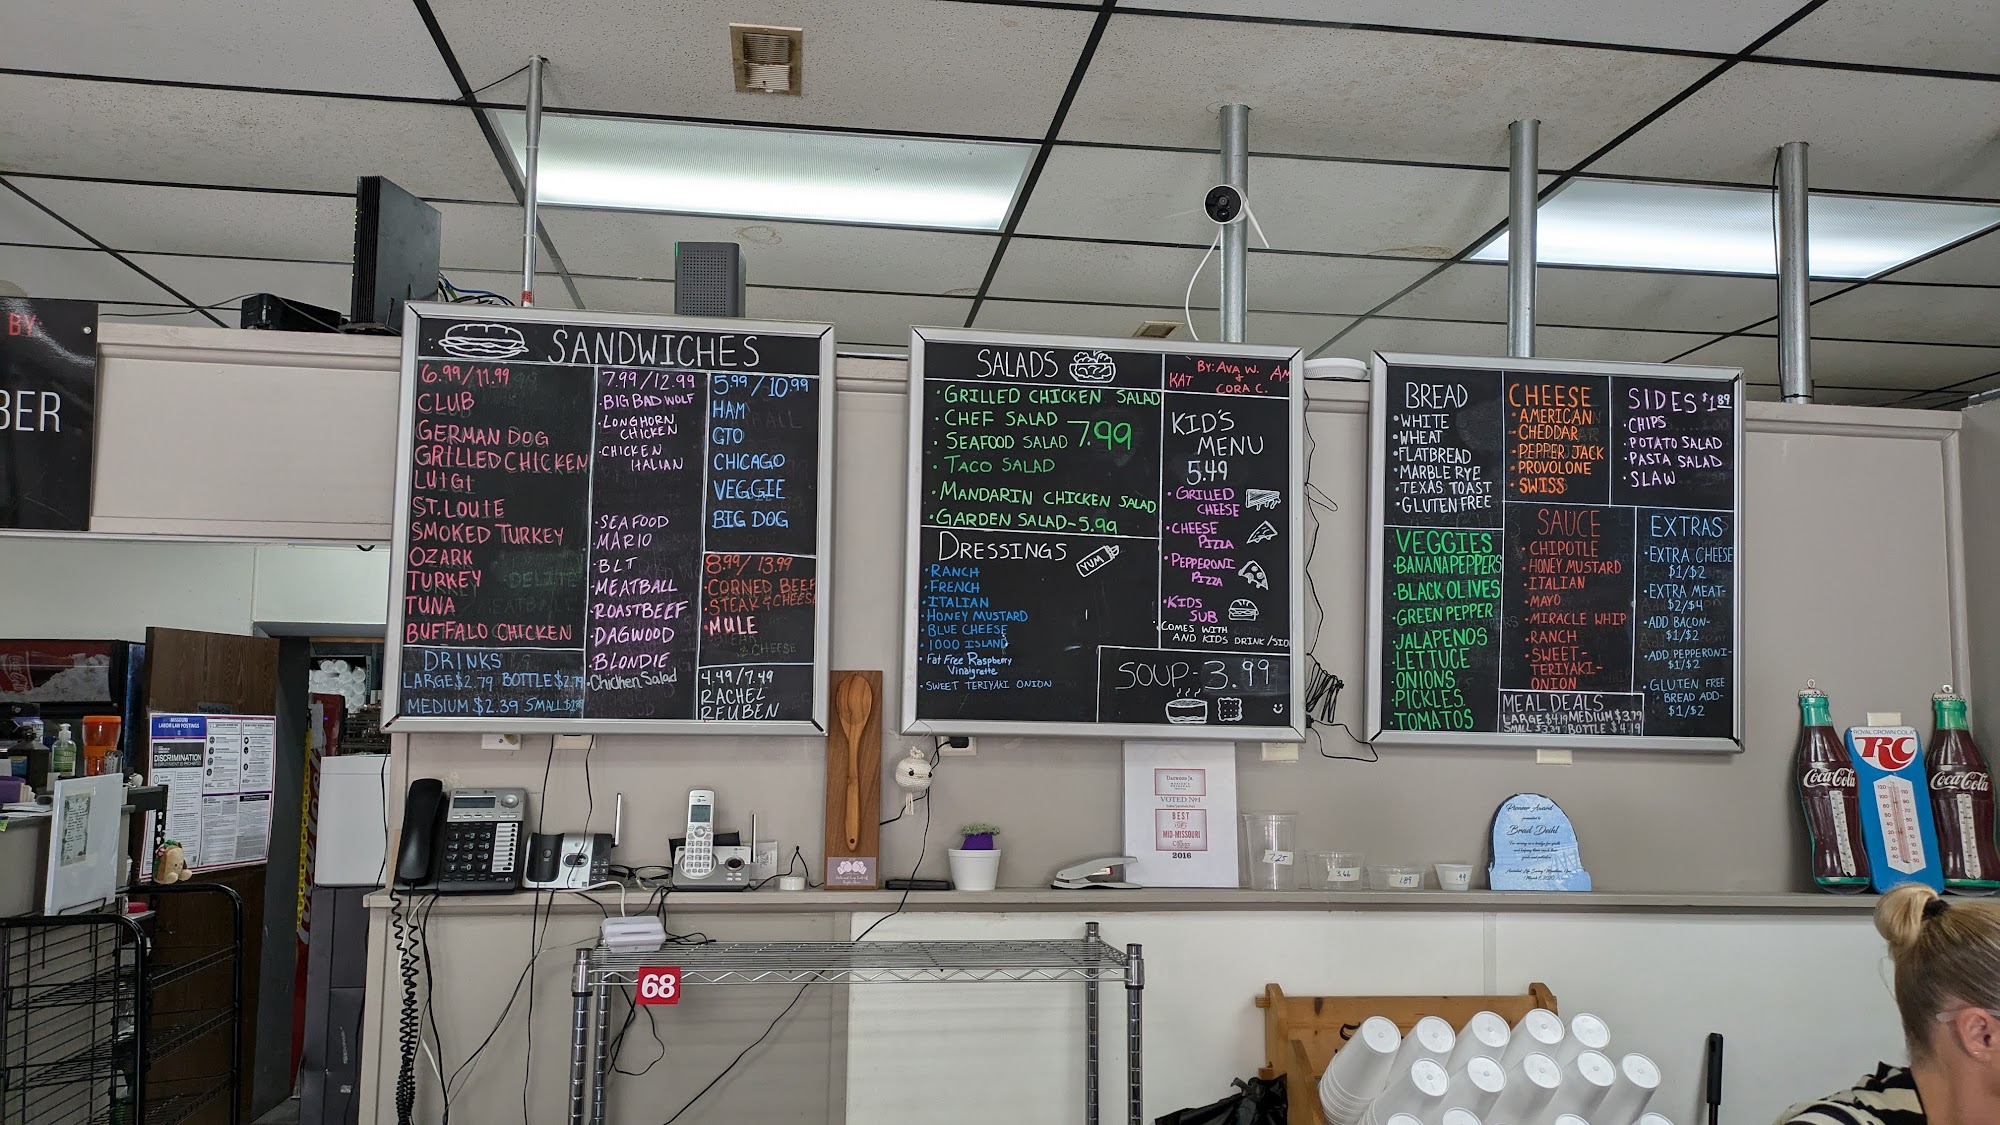 BY
BER
SANDWICHES
6.99/11.99
CLUB
GERMAN DOG
GRILLED CHICKEN
LUIGI
ST. LOUIE
SMOKED TURKEY
OZARK
TURKEY
TUNA
BUFFALO CHICKEN
DRINKS
LARGE $2.79 BOTTLE $2.79
MEDIUM $2.39 SMALL
7.99/12.99
• BIG BAD WOLF
• LONGHORN
CHICKEN
• CHICKEN
ITALIAN
• SEAFOOD
MARIO
• BLT
• MEATBALL
• ROASTBEEF
• DAGWOOD
• BLONDIE
• Chicken Salad
5.99/10.99
HAM
GTO
CHICAGO
VEGGIE
BIG DOG
8.99/13.99
• CORNED BEEF
• STEAK & CHEESE
• MULE
4.49/7.49
RACHEL
REUBEN
SALADS
• GRILLED CHICKEN SALAD
• CHEF SALAD
• SEAFOOD SALAD 7.99
• TACO SALAD
• MANDARIN CHICKEN SALAD
• GARDEN SALAD-5.99
DRESSINGS
YUM
• RANCH
• FRENCH
• ITALIAN
• HONEY MUSTARD
• BLUE CHEESE
• 1000 ISLAND
• Fat Free Raspberry
Vinaigrette
• SWEET TERIYAKI ONION
BY: AVA W. AM
KAT & CORA C.
KID'S
MENU
5.49
• GRILLED
CHEESE
• CHEESE
PIZZA
• PEPPERONI
PIZZA
• KIDS
SUB
• COMES WITH
AND KIDS DRINK/SID
SOUP-3.99
BREAD
• WHITE
• WHEAT
• FLATBREAD
• MARBLE RYE
• TEXAS TOAST
• GLUTEN FREE
VEGGIES
• BANANA PEPPERS
• BLACK OLIVES
• GREEN PEPPER
• JALAPENOS
• LETTUCE
• ONIONS
• PICKLES
• TOMATOS
CHEESE
• AMERICAN
• CHEDDAR
• PEPPER JACK
• PROVOLONE
• SWISS
SIDES $1.89
• CHIPS
• POTATO SALAD
• PASTA SALAD
• SLAW
SAUCE
• CHIPOTLE
• HONEY MUSTARD
• ITALIAN
• MAYO
• MIRACLE WHIP
• RANCH
• SWEET-
TERIYAKI-
ONION
EXTRAS
• EXTRA CHEESE
$1/$2
• EXTRA MEAT-
$2/$4
• ADD BACON-
$1/$2
• ADD PEPPERONI-
$1/$2
• GLUTEN FREE
BREAD ADD-
$1/$2
MEAL DEALS
LARGE $4.19 MEDIUM $3.79
SMALL $3.39 BOTTLE $4.19
MISSOURI
LABOR LAW POSTINGS
DISCRIMINATION
DAGWOOD JR.
VOTED No1
BEST
OF
MID-MISSOURI
2016
7.25
3.66
1.89
.99
Pioneer Award
presented to
Brad Deihl
ROYAL CROWN COLA
RC
Coca-Cola
Coca-Cola
68